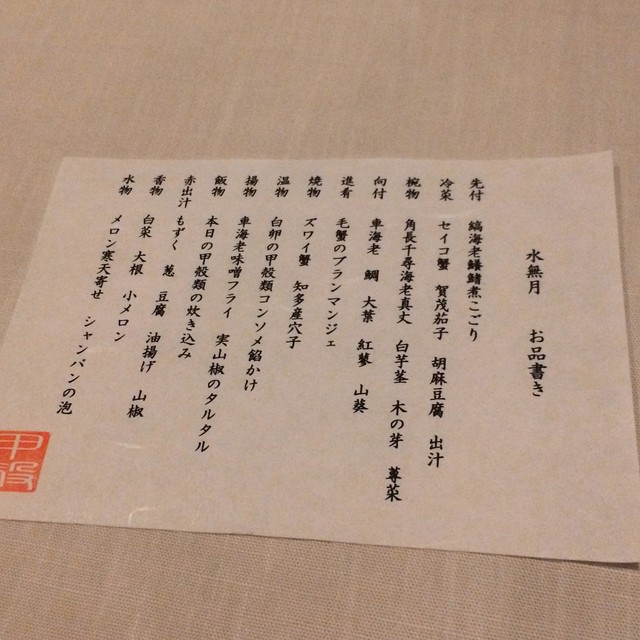 水無月　お品書き
先付　縞海老鱶鰭煮こごり
冷菜　セイコ蟹　賀茂茄子　胡麻豆腐　出汁
椀物　角長千尋海老真丈　白芋茎　木の芽　蓴菜
向付　車海老　鯛　大葉　紅蓼　山葵
進肴　毛蟹のブランマンジェ
焼物　ズワイ蟹　知多産穴子
温物　白卵の甲殻類コンソメ餡かけ
揚物　車海老味噌フライ　実山椒のタルタル
飯物　本日の甲殻類の炊き込み
赤出汁　もずく　葱　豆腐　油揚げ　山椒
香物　白菜　大根　小メロン
水物　メロン寒天寄せ　シャンパンの泡
甲殻